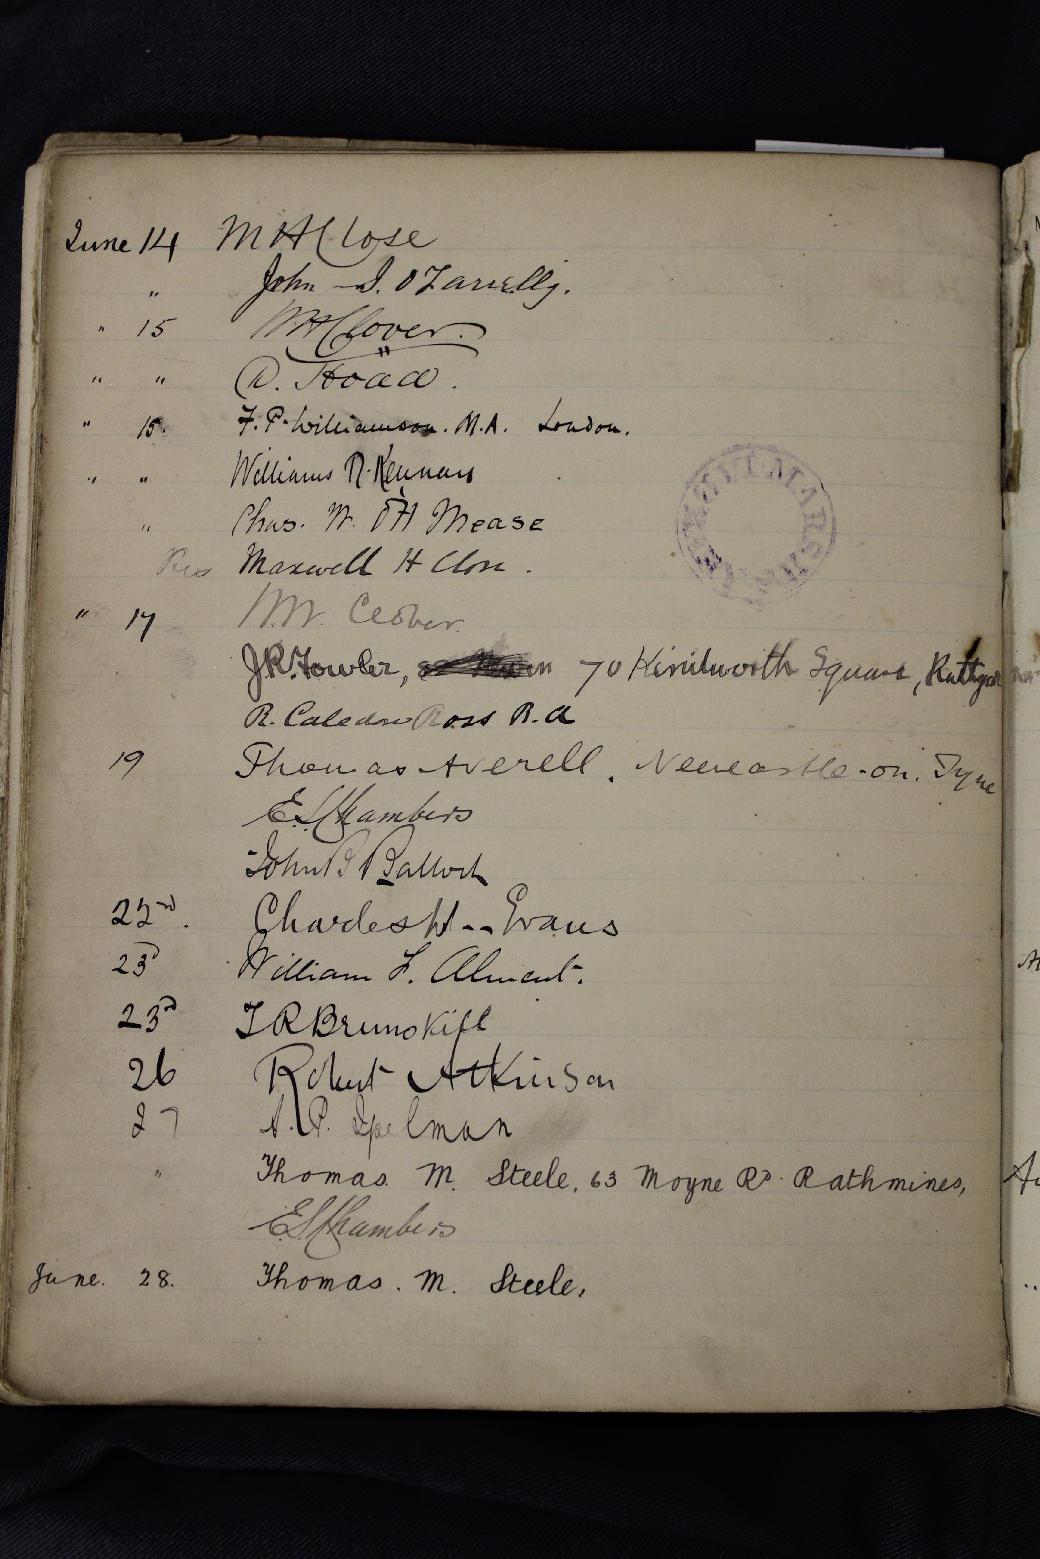 June 14 M H Close
" John J. O'Farrelly.
" 15 W H Clover.
" " D. Hoad.
" 15. F. P. Williamson. M.A. London.
" " William R. Kennan
" Chas. W. O'H Mease
Rev Maxwell H Close.
" 17 W. Clover.
J.R. Fowler, 70 Kenilworth Square, Rathgar
R. Caledon Ross B.A
19 Thomas Averell. Newcastle-on. Tyne
E S Chambers
John Ballock
22nd. Charles W. Evans
23d William F. Alment.
23rd T R Brunskill
26 Robert Atkinson
27 A. P. Spelman
" Thomas. M. Steele, 63 Moyne Rd. Rathmines,
E S Chambers
June. 28. Thomas. M. Steele,